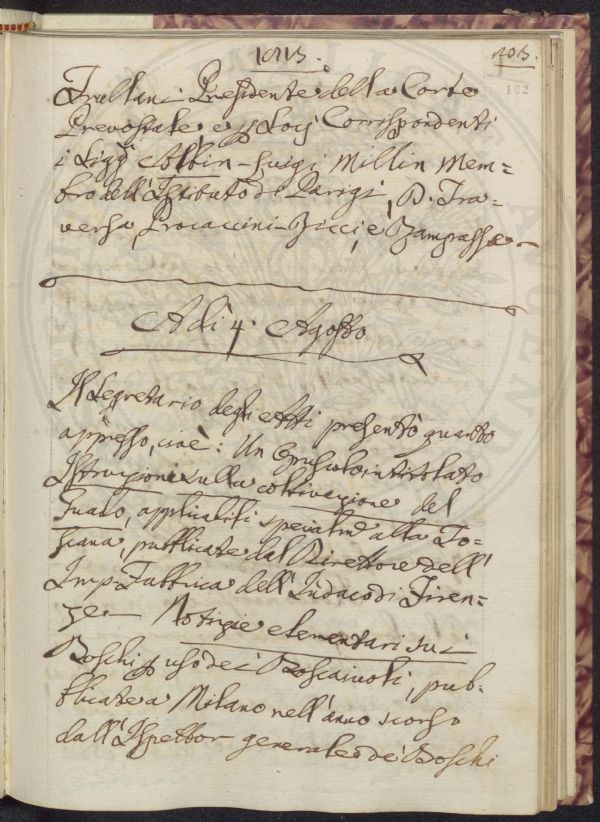 1813.
203.
102
Frullani Presidente della Corte
Prevostale e p Socj Corrispondenti
i Sigg Albin-Luigi Millin Mem=
bro dell'Istituto di Parigi, D. Tra=
versa, Procaccini-Ricci, e Zampasse
Adì 4. Agosto
Il Segretario degli Atti presentò quanto
appresso, cioè: Un Opuscolo intitolato
Istruzioni sulla coltivazione del
Guado, applicabili specialme alla To=
scana, pubblicate dal Direttore dell'
Imp. Fabbrica dell'Indaco di Firen=
ze — Notizie elementari sui
Boschi p uso dei Boscaiuoli, pub-
blicate a Milano nell'anno scorso
dall'Ispettor generale de' Boschi